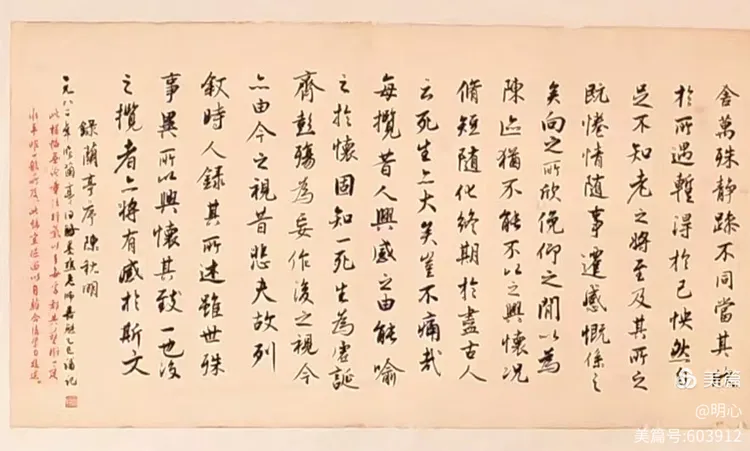 舍萬殊靜躁不同當其
於所遇蹔得於己怏然自
足不知老之將至及其所之
既惓情隨事遷感慨係之
矣向之所欣俛仰之閒以為
陳迹猶不能不以之興懷况
脩短隨化終期於盡古人
云死生亦大矣豈不痛哉
每攬昔人興感之由能喻
之於懷固知一死生為虛誕
齊彭殤為妄作後之視今
亦由今之視昔悲夫故列
敘時人錄其所述雖世殊
事異所以興懷其致一也後
之攬者亦將有感於斯文
錄蘭亭序陳秋明
一九八二年臨蘭亭
美篇
@明心
美篇号:603912